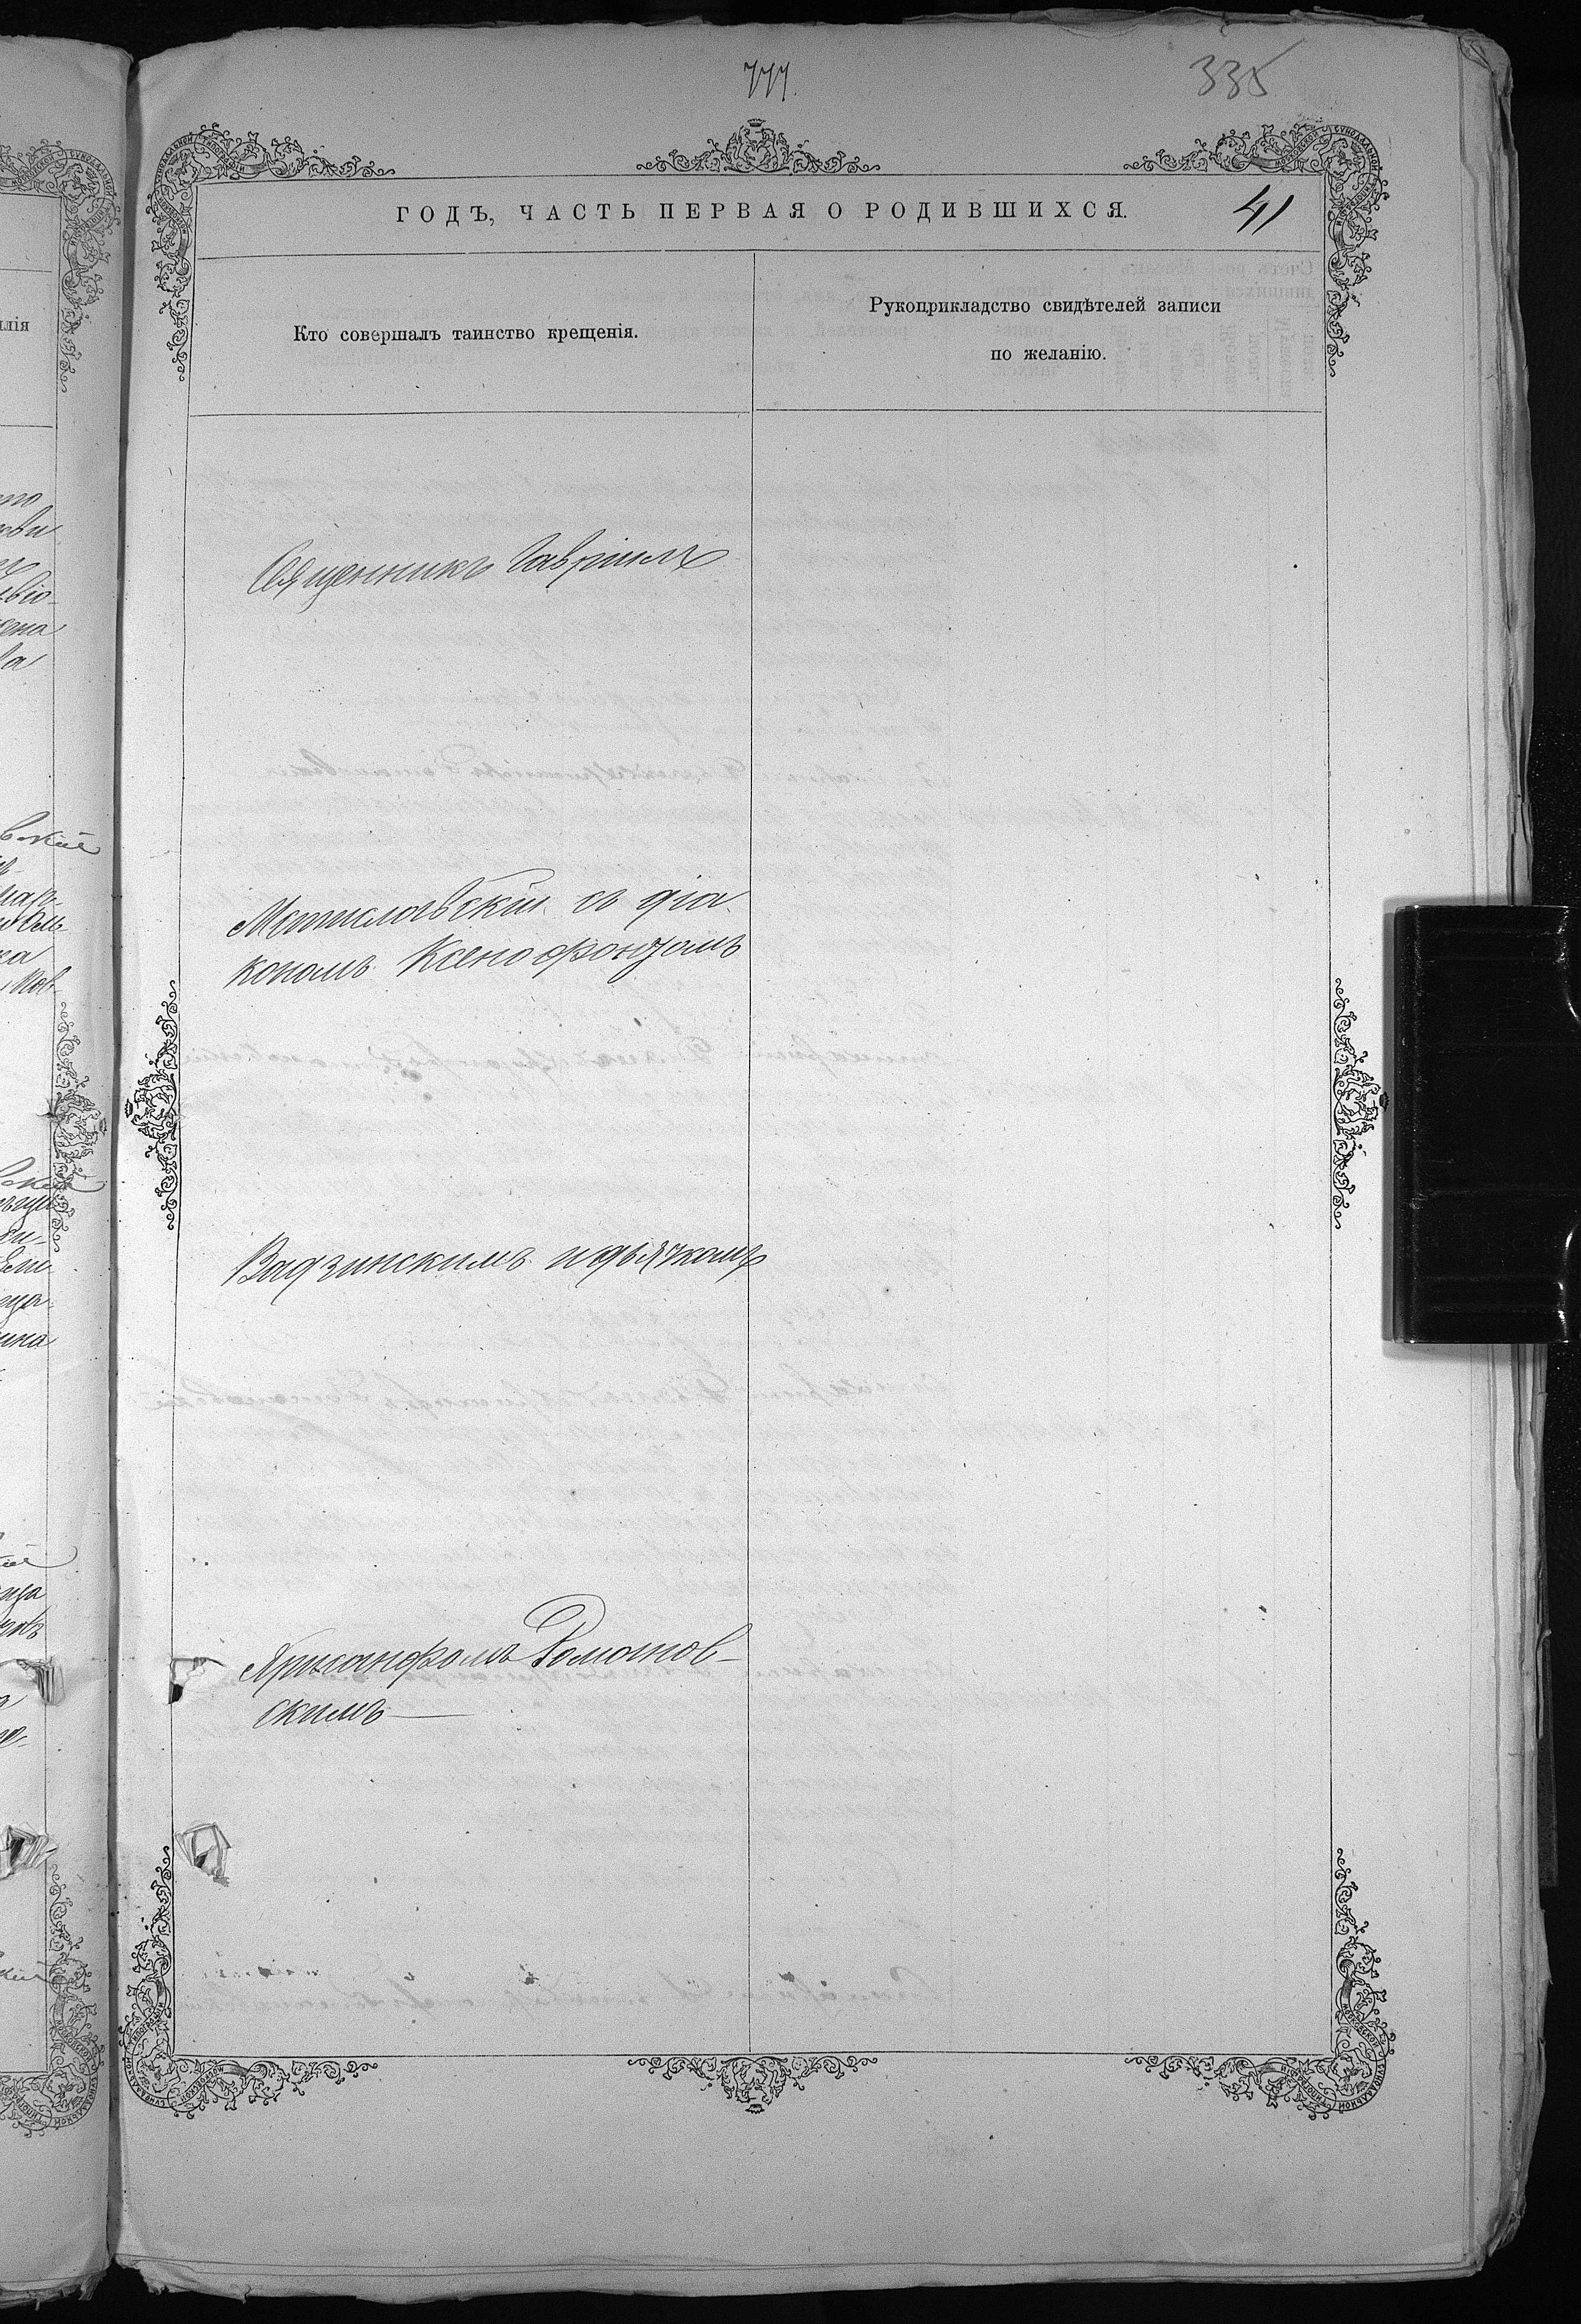 777.
335
ГОДЪ, ЧАСТЬ ПЕРВАЯ О РОДИВШИХСЯ.
41
Кто совершалъ таинство крещенія.
Рукоприкладство свидѣтелей записи
по желанію.
Священникъ Гавріилъ
Мстиславскій съ діа
кономъ Ксенофонтомъ
Вадзинскимъ и дьячкомъ
Хрисанфомъ Романов-
скимъ